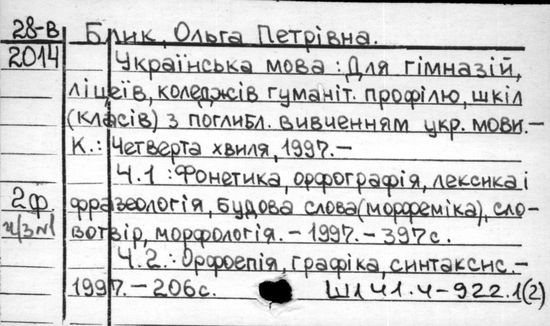 28-В Блик, Ольга Петрівна.
2014 Українська мова : Для гімназій,
ліцеїв, коледжів гуманіт. профілю, шкіл
(класів) з поглибл. вивченням укр. мови.–
К.: Четверта хвиля, 1997.–
Ч.1 : Фонетика, орфографія, лексика і
2ф. фразеологія, будова слова (морфеміка), сло-
ч/з №1 вотвір, морфологія. – 1997. – 397с.
Ч.2.: Орфоепія, графіка, синтаксис. –
1997. – 206с. Ш141.4-922.1(2)